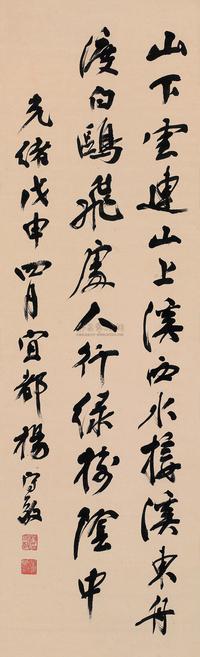 山下雲連山上溪西水接溪東舟
渡白鷗飛處人行綠樹陰中
光緒戊申四月宜都楊守敬